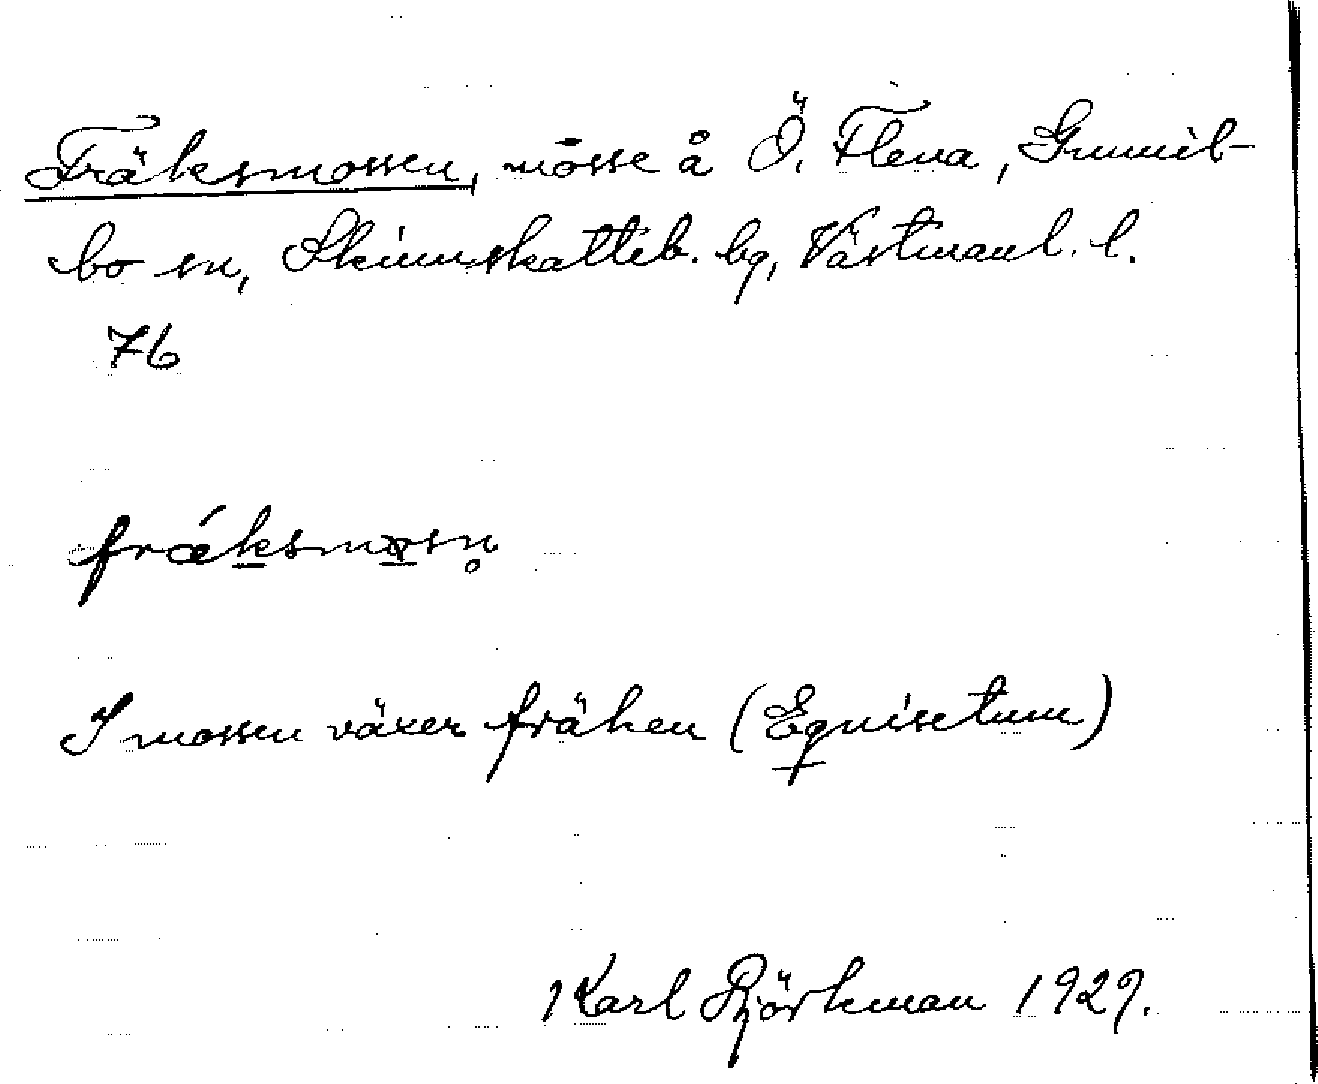 Fräksmossen, mosse å Ö. Flena, Gunnil-
bo sn, Skinnskatteb. bg, Västmanl. l.
76
frǽksmosn̥
I mossen växer fräken (Equisetum)
Karl Björkman 1929.